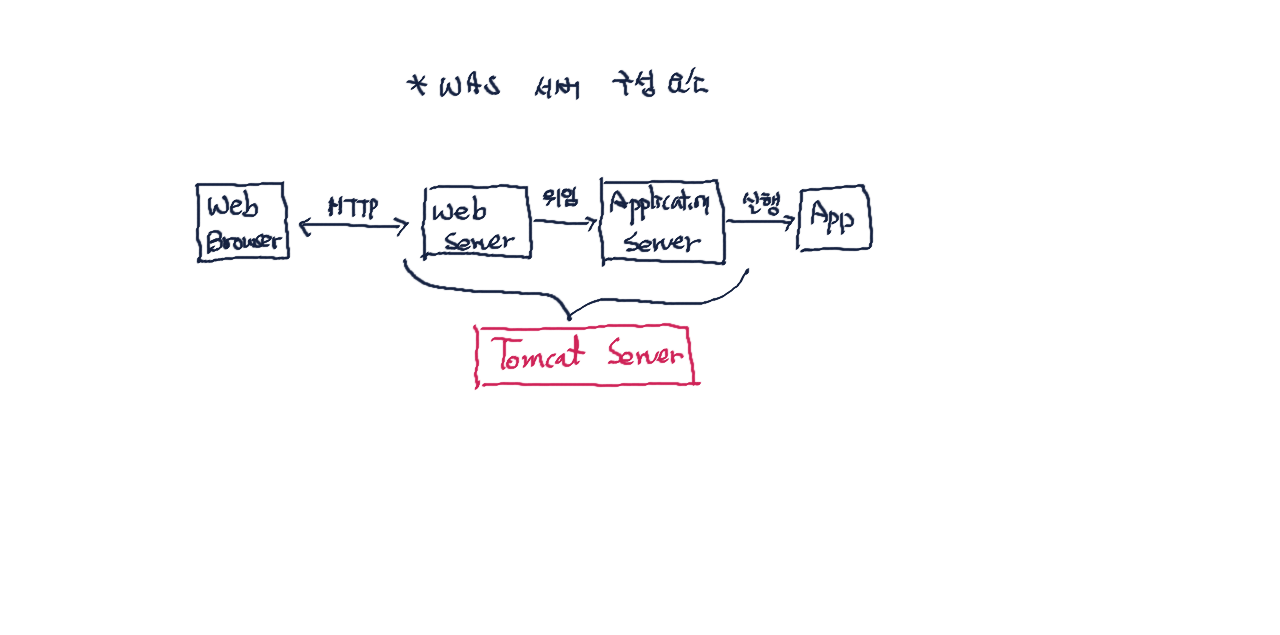 * WAS 서버 구성 요소
Web
Browser
HTTP
Web
Server
위임
Application
Server
실행
App
Tomcat Server